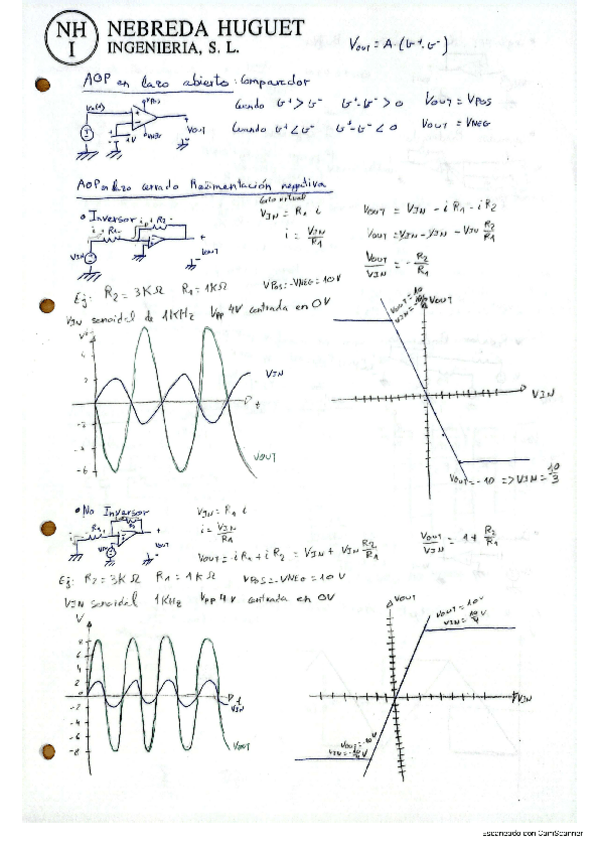 NH
I
NEBREDA HUGUET
INGENIERIA, S. L.
Vout = A·(v+, v-)
AOP en lazo abierto: Comparador
Cuando v+ > v- v+ - v- > 0 Vout = VPOS
Cuando v+ < v- v+ - v- < 0 Vout = VNEG
VPOS
VNEG
Vout
1V
AOP en lazo cerrado Realimentación negativa
• Inversor
VIN = R1 i
i = VIN/R1
Vout = VIN - iR1 - iR2
Vout = VIN - VIN - VIN R2/R1
Vout/VIN = -R2/R1
VPOS = -VNEG = 10V
Ej: R2 = 3KΩ R1 = 1KΩ
VIN senoidal de 1KHz VPP 4V centrada en 0V
VIN
t
VOUT
-2
-4
-6
Vout
VIN
Vout = -10 => VIN = 10/3
• No Inversor
VIN = R1 i
i = VIN/R1
Vout = iR1 + iR2 = VIN + VIN R2/R1
Vout/VIN = 1 + R2/R1
Ej: R2 = 3KΩ R1 = 1KΩ VPOS = -VNEG = 10V
VIN senoidal 1KHz VPP 4V centrada en 0V
V
8
6
4
2
-2
-4
-6
-8
t
VIN
Vout
Vout
Vout = 10V
VIN = 10/4 V
VIN
Vout = -10V
VIN = -10/4 V
Escaneado con CamScanner